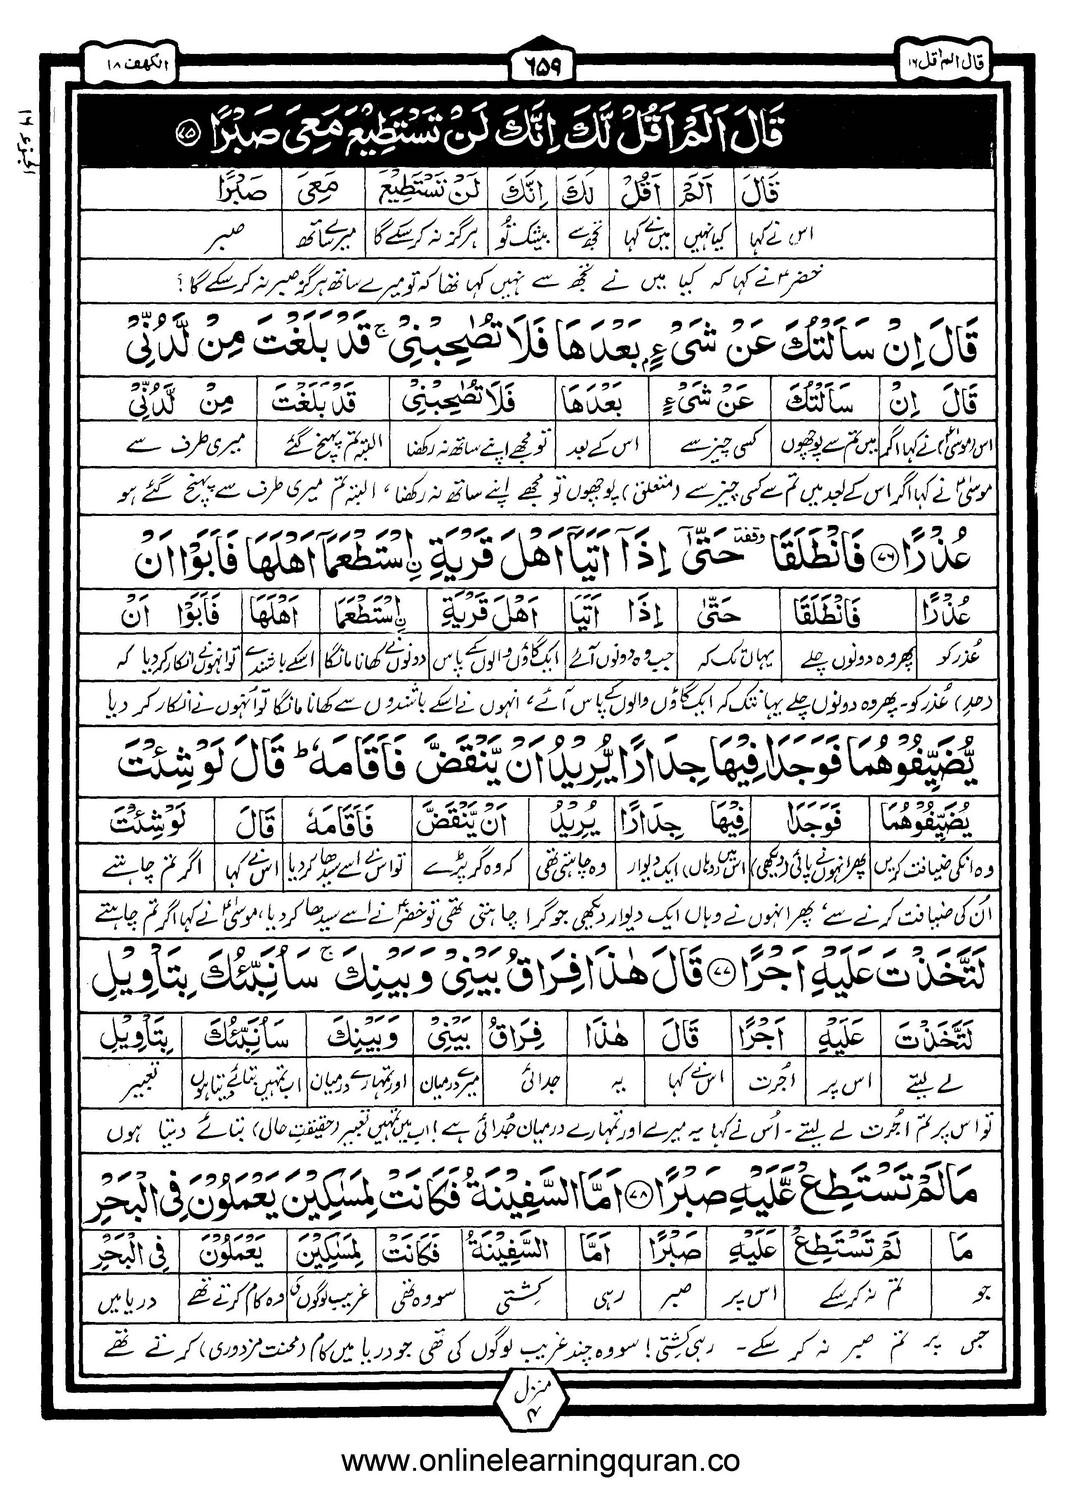 قال الم اقل ۱۶
۶۵۹
الکهف ۱۸
الجزء ۱۶
قَالَ اَلَمْ اَقُلْ لَّكَ اِنَّكَ لَنْ تَسْتَطِيْعَ مَعِىَ صَبْرًا ۷۵
قَالَ اَلَمْ اَقُلْ لَكَ اِنَّكَ لَنْ تَسْتَطِيْعَ مَعِىَ صَبْرًا
اس نے کہا کیا نہیں میں نے کہا تجھ سے بیشک تُو ہرگز نہ کرسکے گا میرے ساتھ صبر
خضرؑ نے کہا کہ کیا میں نے تجھ سے نہیں کہا تھا کہ تو میرے ساتھ ہرگز صبر نہ کرسکے گا؟
قَالَ اِنْ سَاَلْتُكَ عَنْ شَىْءٍۭ بَعْدَهَا فَلَا تُصٰحِبْنِىْ ۚ قَدْ بَلَغْتَ مِنْ لَّدُنِّىْ
قَالَ اِنْ سَاَلْتُكَ عَنْ شَىْءٍ بَعْدَهَا فَلَا تُصٰحِبْنِىْ قَدْ بَلَغْتَ مِنْ لَّدُنِّىْ
اس (موسیٰؑ) نے کہا اگر میں تم سے پوچھوں کسی چیز سے اس کے بعد تو مجھے اپنے ساتھ نہ رکھنا البتہ تم پہنچ گئے میری طرف سے
موسیٰؑ نے کہا اگر اس کے بعد میں تم سے کسی چیز سے (متعلق) پوچھوں تو مجھے اپنے ساتھ نہ رکھنا، البتہ تم میری طرف سے پہنچ گئے ہو
عُذْرًا ۷۶ فَانْطَلَقَا وقفۃ حَتّٰىٓ اِذَآ اَتَيَآ اَهْلَ قَرْيَةِ ۨاسْتَطْعَمَآ اَهْلَهَا فَاَبَوْا اَنْ
عُذْرًا فَانْطَلَقَا حَتّٰى اِذَا اَتَيَا اَهْلَ قَرْيَةِ ۨاسْتَطْعَمَا اَهْلَهَا فَاَبَوْا اَنْ
عُذر کو پھر وہ دونوں چلے یہاں تک کہ جب وہ دونوں آئے ایک گاؤں والوں کے پاس دونوں نے کھانا مانگا اسکے باشندے تو انہوں نے انکار کر دیا کہ
(حد) عُذر کو۔ پھر وہ دونوں چلے یہانتک کہ ایک گاؤں والوں کے پاس آئے، انہوں نے اسکے باشندوں سے کھانا مانگا تو اُنہوں نے انکار کر دیا
يُّضَيِّفُوْهُمَا فَوَجَدَا فِيْهَا جِدَارًا يُّرِيْدُ اَنْ يَّنْقَضَّ فَاَقَامَهٗ ؕ قَالَ لَوْ شِئْتَ
يُضَيِّفُوْهُمَا فَوَجَدَا فِيْهَا جِدَارًا يُرِيْدُ اَنْ يَّنْقَضَّ فَاَقَامَهٗ قَالَ لَوْ شِئْتَ
وہ انکی ضیافت کریں پھر انہوں نے پائی (دیکھی) اس میں (وہاں) ایک دیوار وہ چاہتی تھی کہ وہ گر پڑے تو اس نے اسے سیدھا کر دیا اس نے کہا اگر تم چاہتے
اُن کی ضیافت کرنے سے، پھر انہوں نے وہاں ایک دیوار دیکھی جو گرا چاہتی تھی تو خضرؑ نے اسے سیدھا کر دیا، موسیٰؑ نے کہا اگر تم چاہتے
لَتَّخَذْتَ عَلَيْهِ اَجْرًا ۷۷ قَالَ هٰذَا فِرَاقُ بَيْنِىْ وَبَيْنِكَ ۚ سَاُنَبِّئُكَ بِتَاْوِيْلِ
لَتَّخَذْتَ عَلَيْهِ اَجْرًا قَالَ هٰذَا فِرَاقُ بَيْنِىْ وَبَيْنِكَ سَاُنَبِّئُكَ بِتَاْوِيْلِ
لے لیتے اس پر اُجرت اس نے کہا یہ جدائی میرے درمیان اور تمہارے درمیان اب تمہیں بتائے دیتا ہوں تعبیر
تو اس پر تم اُجرت لے لیتے۔ اُس نے کہا یہ میرے اور تمہارے درمیان جُدائی ہے! اب میں تمہیں تعبیر (حقیقتِ حال) بتائے دیتا ہوں
مَا لَمْ تَسْتَطِعْ عَّلَيْهِ صَبْرًا ۷۸ اَمَّا السَّفِيْنَةُ فَكَانَتْ لِمَسٰكِيْنَ يَعْمَلُوْنَ فِى الْبَحْرِ
مَا لَمْ تَسْتَطِعْ عَلَيْهِ صَبْرًا اَمَّا السَّفِيْنَةُ فَكَانَتْ لِمَسٰكِيْنَ يَعْمَلُوْنَ فِى الْبَحْرِ
جو تم نہ کرسکے اس پر صبر رہی کشتی سو وہ تھی غریب لوگوں کی وہ کام کرتے تھے دریا میں
جس پر تم صبر نہ کر سکے۔ رہی کشتی! سو وہ چند غریب لوگوں کی تھی جو دریا میں کام (محنت مزدوری) کرتے تھے
منزل
۴
www.onlinelearningquran.co